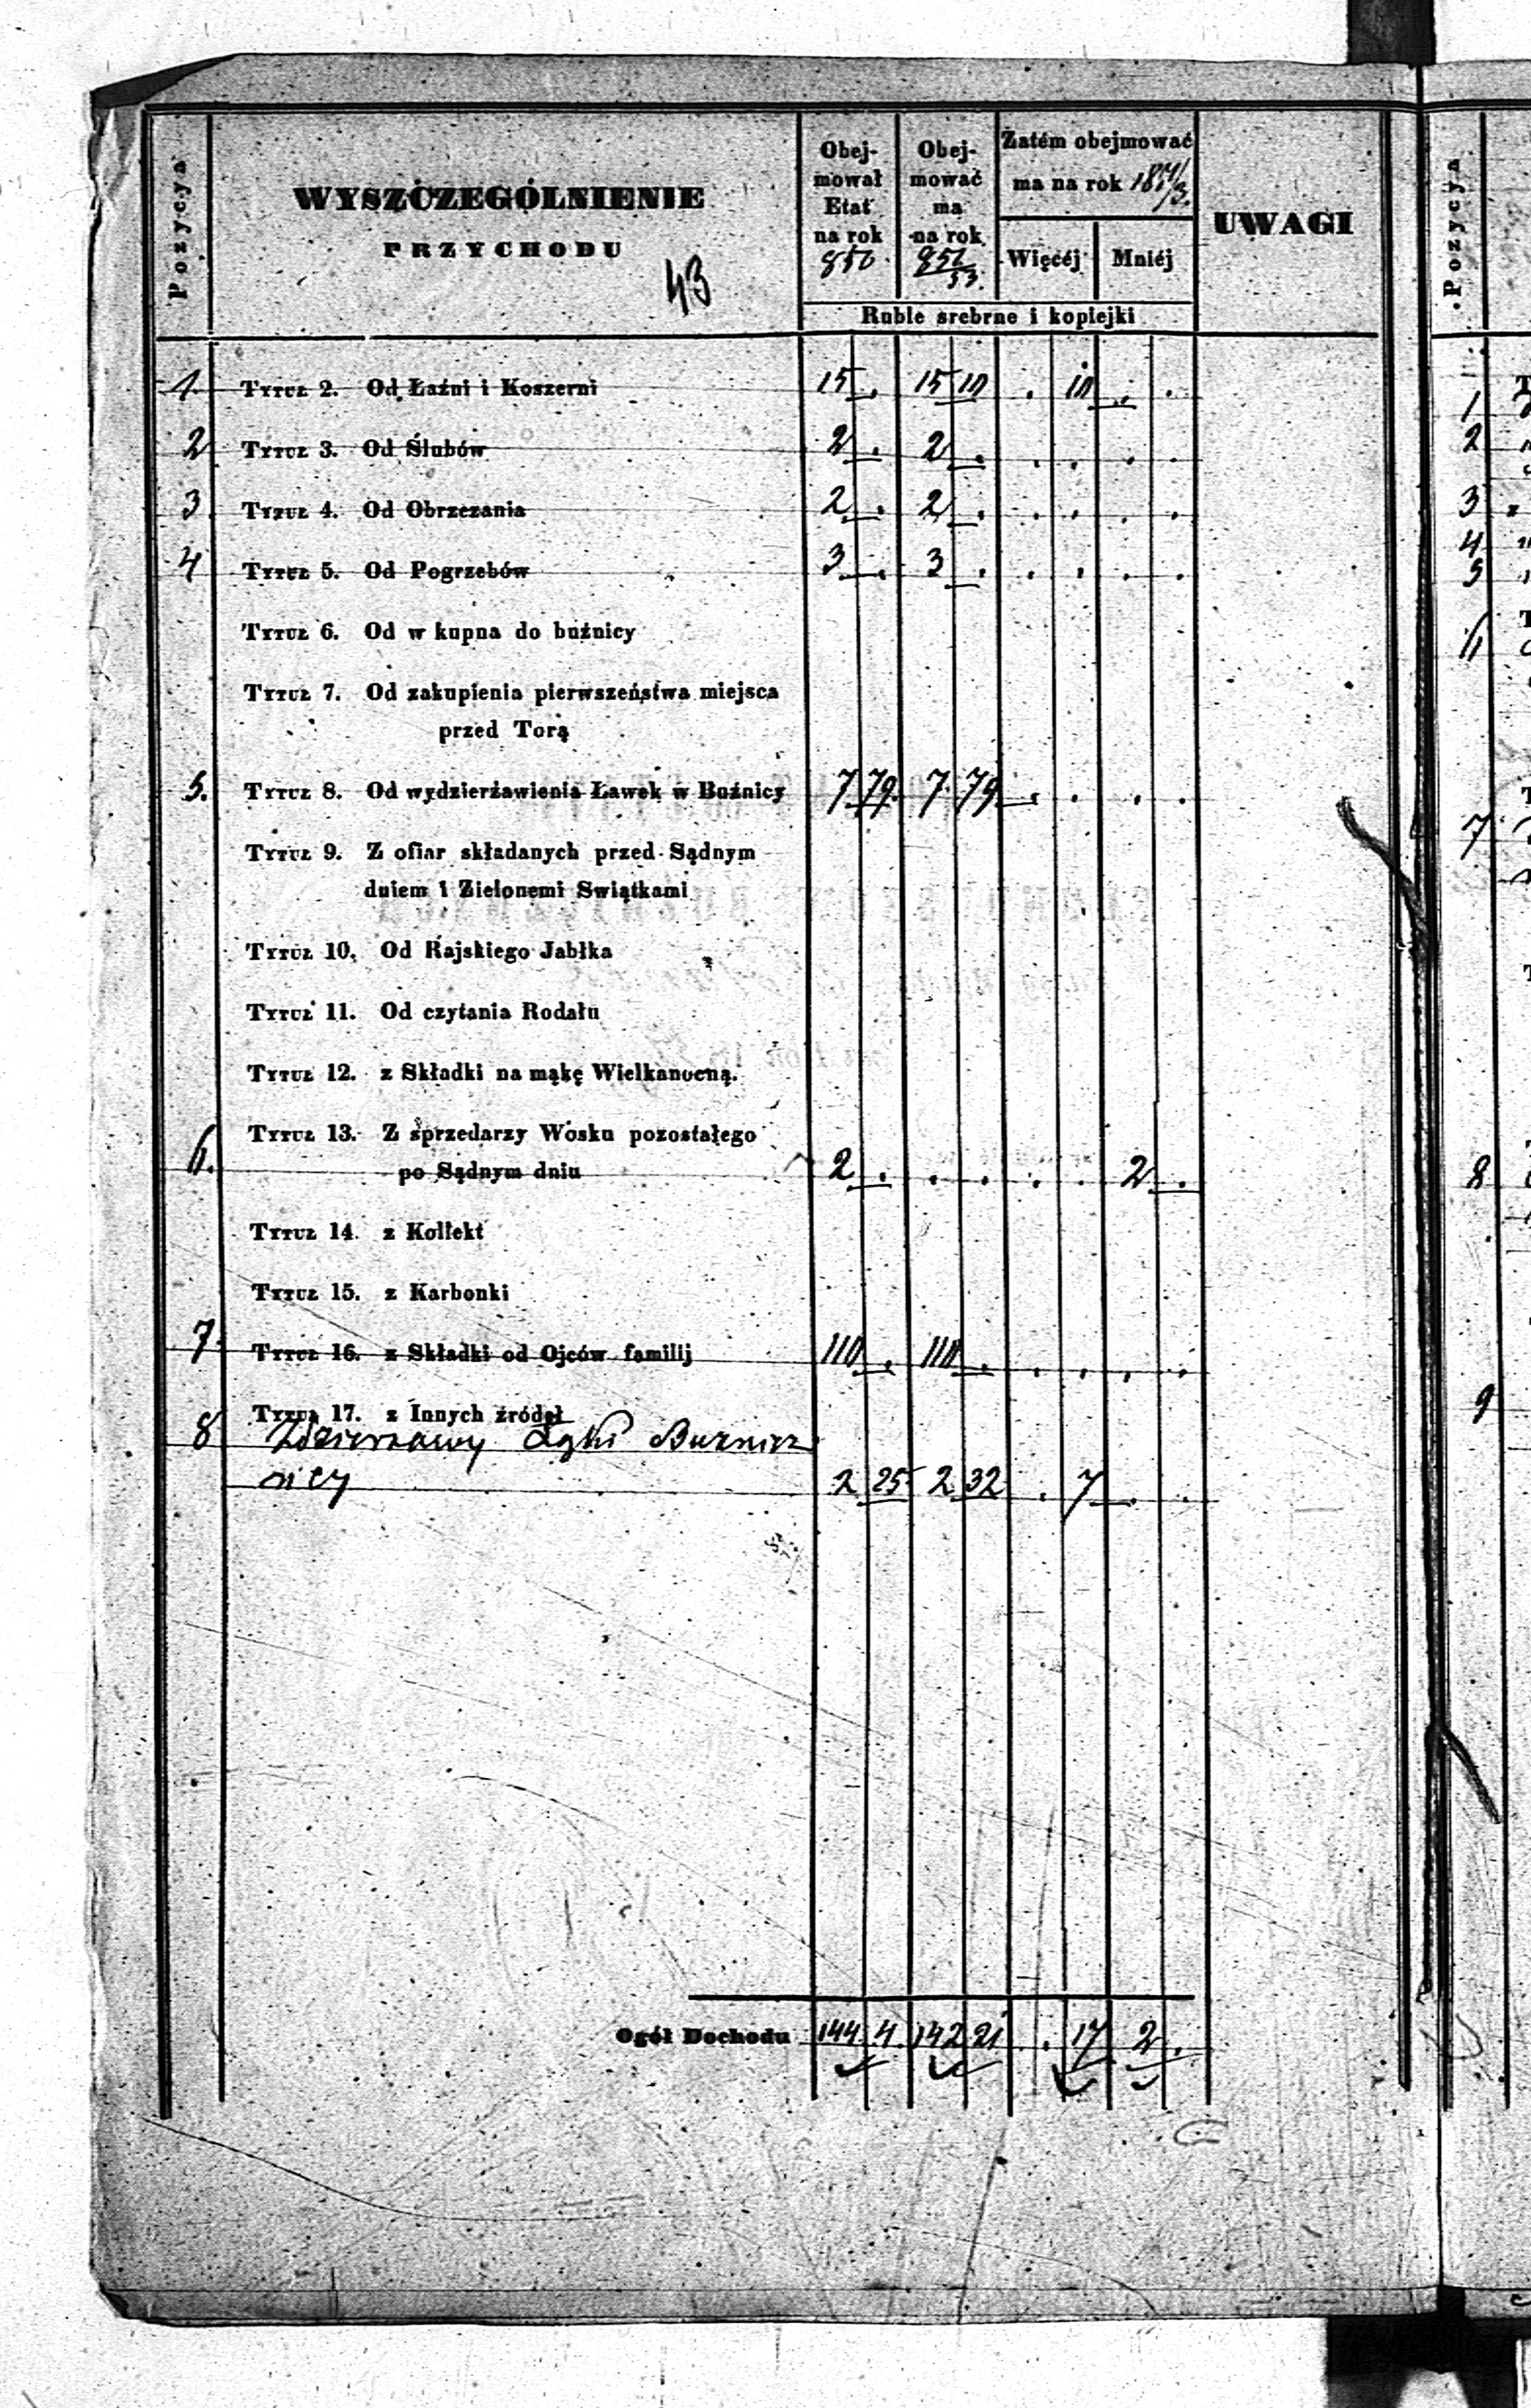 Pozycya
WYSZCZEGÓLNIENIE
PRZYCHODU
43
Obej-
mował
Etat
na rok
850
Obej-
mować
ma
na rok
852/53.
Zatém obejmować
ma na rok 18
Więcéj
Mniéj
UWAGI
Ruble srebrne i kopiejki
1 Tytuł 2. Od Łaźni i Koszerni 15 . 15 10 . 10 . .
2 Tytuł 3. Od Ślubów 2 . 2 . . . . .
3 Tytuł 4. Od Obrzezania 2 . 2 . . . . .
4 Tytuł 5. Od Pogrzebów 3 . 3 . . . . .
Tytuł 6. Od w kupna do buźnicy
Tytuł 7. Od zakupienia pierwszeństwa miejsca
przed Torą
5. Tytuł 8. Od wydzierżawienia Ławek w Boźnicy 7 79. 7 79 . . . .
Tytuł 9. Z ofiar składanych przed Sądnym
dniem i Zielonemi Swiątkami
Tytuł 10. Od Rajskiego Jabłka
Tytuł 11. Od czytania Rodału
Tytuł 12. z Składki na mąkę Wielkanocną.
Tytuł 13. Z sprzedarzy Wosku pozostałego
6. po Sądnym dniu 2 . . . . . 2 .
Tytuł 14. z Kollekt
Tytuł 15. z Karbonki
7. Tytuł 16. z Składki od Ojców familij 110 . 110 . . . . .
Tytuł 17. z Innych źródeł
8 Zdzierzawy
nicy 2 25 2 32 . 7 . .
Ogół Dochodu 144 4. 142 21 . 17 2 .
Pozycya
1
2
3
4
5
6
7
8
9